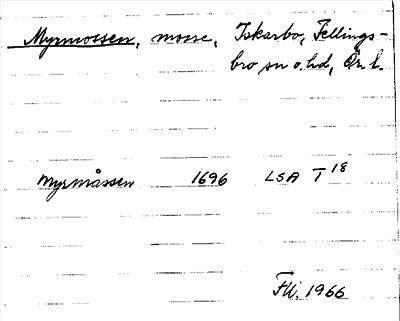 Myrmossen, mosse, Iskarbo, Fellings-
bro sn o. hd, Ör. l.
Myrmåssen 1696 LSA T 18
1966